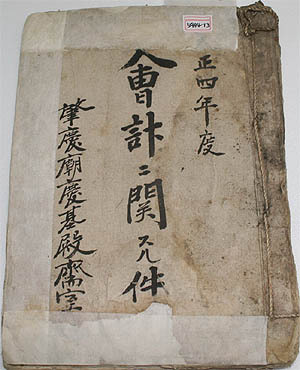 正四年度
會計ニ関スル件
肇慶廟慶基殿齋室